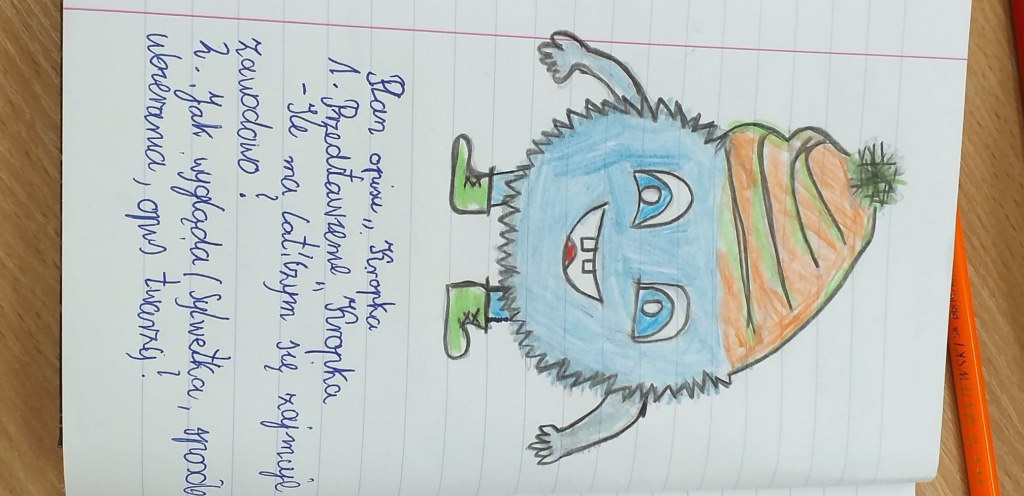 Plan opisu „Kropka
1. Przedstawienie „Kropka
- Ile ma lat i czym się zajmuje
zawodowo?
2. Jak wygląda (sylwetka, sposób
ubierania, opis twarzy?